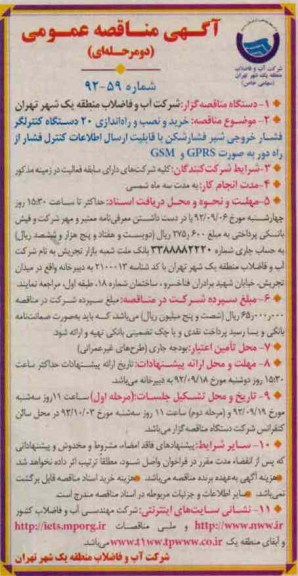 آگهی مناقصه عمومی
(دومرحله‌ای)
شرکت آب و فاضلاب
منطقه یک شهر تهران
(سهامی خاص)
شماره ۵۹-۹۲
۱- دستگاه مناقصه‌گزار: شرکت آب و فاضلاب منطقه یک شهر تهران
۲- موضوع مناقصه: خرید و نصب و راه‌اندازی ۲۰ دستگاه کنترلگر
فشار خروجی شیر فشارشکن با قابلیت ارسال اطلاعات کنترل فشار از
راه دور به صورت GPRS و GSM
۳- شرایط شرکت‌کنندگان: کلیه شرکت‌های دارای سابقه فعالیت در زمینه مذکور
۴- مدت انجام کار: به مدت سه ماه شمسی
۵- مهلت و نحوه و محل دریافت اسناد: حداکثر تا ساعت ۱۵:۳۰ روز
چهارشنبه مورخ ۹۲/۰۹/۰۶ با در دست داشتن معرفی‌نامه معتبر و مهر شرکت و فیش
بانکی پرداختی به مبلغ ۲۷۵,۶۰۰ ریال (دویست و هفتاد و پنج هزار و ششصد ریال)
به حساب جاری شماره ۳۳۸۸۸۸۲۲۲۰ بانک ملت شعبه بازار تجریش به نام شرکت
آب و فاضلاب منطقه یک شهر تهران با کد شناسه ۲۱۰۰۰۱۳ به دبیرخانه واقع در میدان
تجریش، خیابان شهید برادران فناخسرو، ساختمان شماره ۱۸، طبقه اول، مراجعه نمایند.
۶- مبلغ سپرده شرکت در مناقصه: مبلغ سپرده شرکت در مناقصه
۶۵,۰۰۰,۰۰۰ ریال (شصت و پنج میلیون ریال) می‌باشد. که باید به‌صورت ضمانت‌نامه
بانکی و یا رسید پرداخت نقدی و یا چک تضمینی بانکی تهیه و ارائه شود.
۷- محل تأمین اعتبار: بودجه جاری (طرح‌های غیرعمرانی)
۸- مهلت و محل ارائه پیشنهادات: تاریخ ارائه پیشنهادات حداکثر ساعت
۱۵:۳۰ روز دوشنبه مورخ ۹۲/۰۹/۱۸ به دبیرخانه می‌باشد.
۹- تاریخ و محل تشکیل جلسات: (مرحله اول) ساعت ۱۱ روز سه‌شنبه
مورخ ۹۲/۰۹/۱۹ و (مرحله دوم) ساعت ۱۱ روز سه‌شنبه مورخ ۹۲/۱۰/۰۳ در محل سالن
کنفرانس شرکت دستگاه مناقصه‌گزار می‌باشد.
۱۰- سایر شرایط: پیشنهادهای فاقد امضاء، مشروط و مخدوش و پیشنهاداتی
که پس از انقضاء مدت مقرر در فراخوان واصل شود، مطلقا ترتیب اثر داده نخواهد شد.
هزینه آگهی به‌عهده برنده مناقصه می‌باشد. هزینه خرید اسناد مناقصه قابل برگشت
نمی‌باشد. سایر اطلاعات و جزئیات مربوطه در اسناد مناقصه مندرج است.
۱۱- نشانی سایت‌های اینترنتی: شرکت مهندسی آب و فاضلاب کشور
http://www.nww.ir و ملی مناقصات http://iets.mporg.ir
و آبفای منطقه یک www.t1ww.tpwww.co.ir می‌باشد.
شرکت آب و فاضلاب منطقه یک شهر تهران